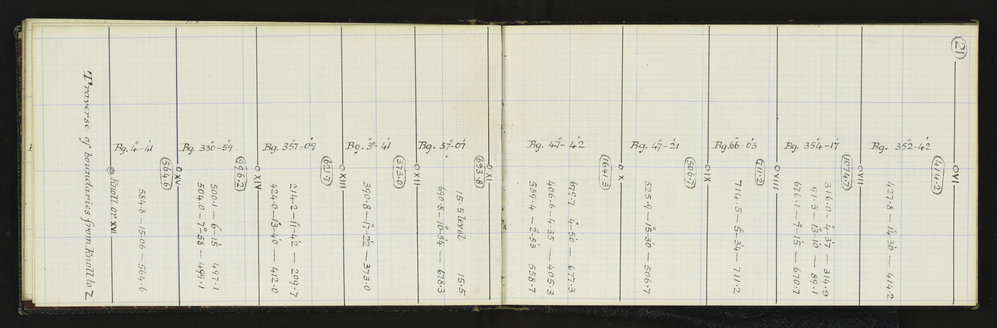 (21)
O VI
(414.2)
Bg. 352°-42' 427.8 — 14°.30' — 414.2
O VII
(1074.7)
316.0 — 4°.37' — 314.9
91.5 — 13°.10' — 89.1
Bg. 354°-17' 671.1 — 2°-15' — 670.7
O VIII
(711.2)
Bg. 66°-03' 714.5 — 5°-34' — 711.2
O IX
(506.7)
Bg. 47°-21' 525.8 — 15°-30' — 506.7
O X
(1641.3)
679.7 4°-50' — 677.3
406.6 — 4°.35' — 405.3
Bg. 47°-42' 559.4 — 2°-53' 558.7
O XI
(693.8)
15.5 level 15.5
Bg. 37°-07' 690.8 — 10°-54' — 678.3
O XII
(373.0)
Bg. 3°-41' 390.8 — 17°-22' — 373.0
O XIII
(621.7)
214.2 — 11°-42' — 209.7
Bg. 357°-09' 424.0 — 13°-40' — 412.0
O XIV
(996.2)
500.1 — 6°-15' 497.1
Bg. 330°-59' 504.0 — 7°-58' — 499.1
O XV
(564.6)
Bg. 4°-41' 584.8 — 15.06 — 564.6
Knoll or XVI
Traverse of boundaries from Knoll to Z